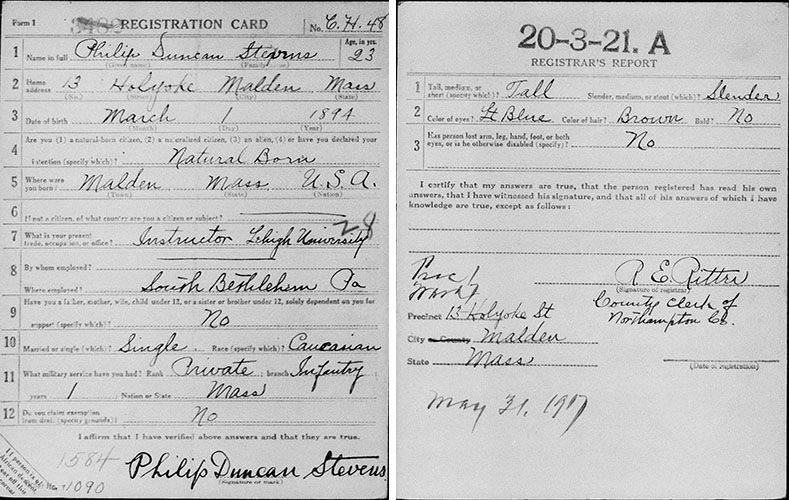 Form 1
3482
REGISTRATION CARD
No. C.H. 48
1 Name in full Philip Duncan Stevens Age, in yrs. 23
(Given name) (Family name)
2 Home address 13 Holyoke Malden Mass
(No.) (Street) (City) (State)
3 Date of birth March 1 1894
(Month) (Day) (Year)
4 Are you (1) a natural-born citizen, (2) a naturalized citizen, (3) an alien, (4) or have you declared your
intention (specify which)? Natural Born
5 Where were you born? Malden Mass U.S.A.
(Town) (State) (Nation)
6 If not a citizen, of what country are you a citizen or subject?
28
7 What is your present trade, occupation, or office? Instructor Lehigh University
8 By whom employed?
Where employed? South Bethlehem Pa
9 Have you a father, mother, wife, child under 12, or a sister or brother under 12, solely dependent on you for
support (specify which)? No
10 Married or single (which)? Single Race (specify which)? Caucasian
11 What military service have you had? Rank Private ; branch Infantry ;
years 1 Nation or State Mass
12 Do you claim exemption from draft (specify grounds)? No
I affirm that I have verified above answers and that they are true.
1584
1090
Philip Duncan Stevens
(Signature or mark)
If person is of African descent, tear off this corner
20-3-21. A
REGISTRAR'S REPORT
1 Tall, medium, or short (specify which)? Tall Slender, medium, or stout (which)? Slender
2 Color of eyes? Lt Blue Color of hair? Brown Bald? No
3 Has person lost arm, leg, hand, foot, or both eyes, or is he otherwise disabled (specify)? No
I certify that my answers are true, that the person registered has read his own
answers, that I have witnessed his signature, and that all of his answers of which I have
knowledge are true, except as follows:
Prec 1
Ward 7
R E. Ritter
(Signature of registrar)
Precinct 13 Holyoke St
County Clerk of
Northampton Co.
City or County Malden
State Mass
(Date of registration)
May 31, 1917